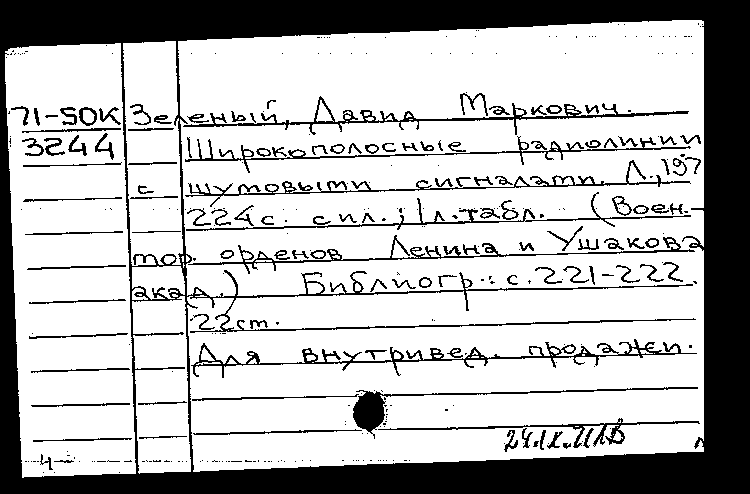 71-50К Зеленый, Давид Маркович.
3244 Широкополосные радиолинии
с шумовыми сигналами. Л., 197
224с. с ил.; 1л.табл. (Воен.-
мор. орденов Ленина и Ушакова
акад.) Библиогр.: с.221-222.
22см.
Для внутривед. продажи.
24.IX.71ЛВ
4